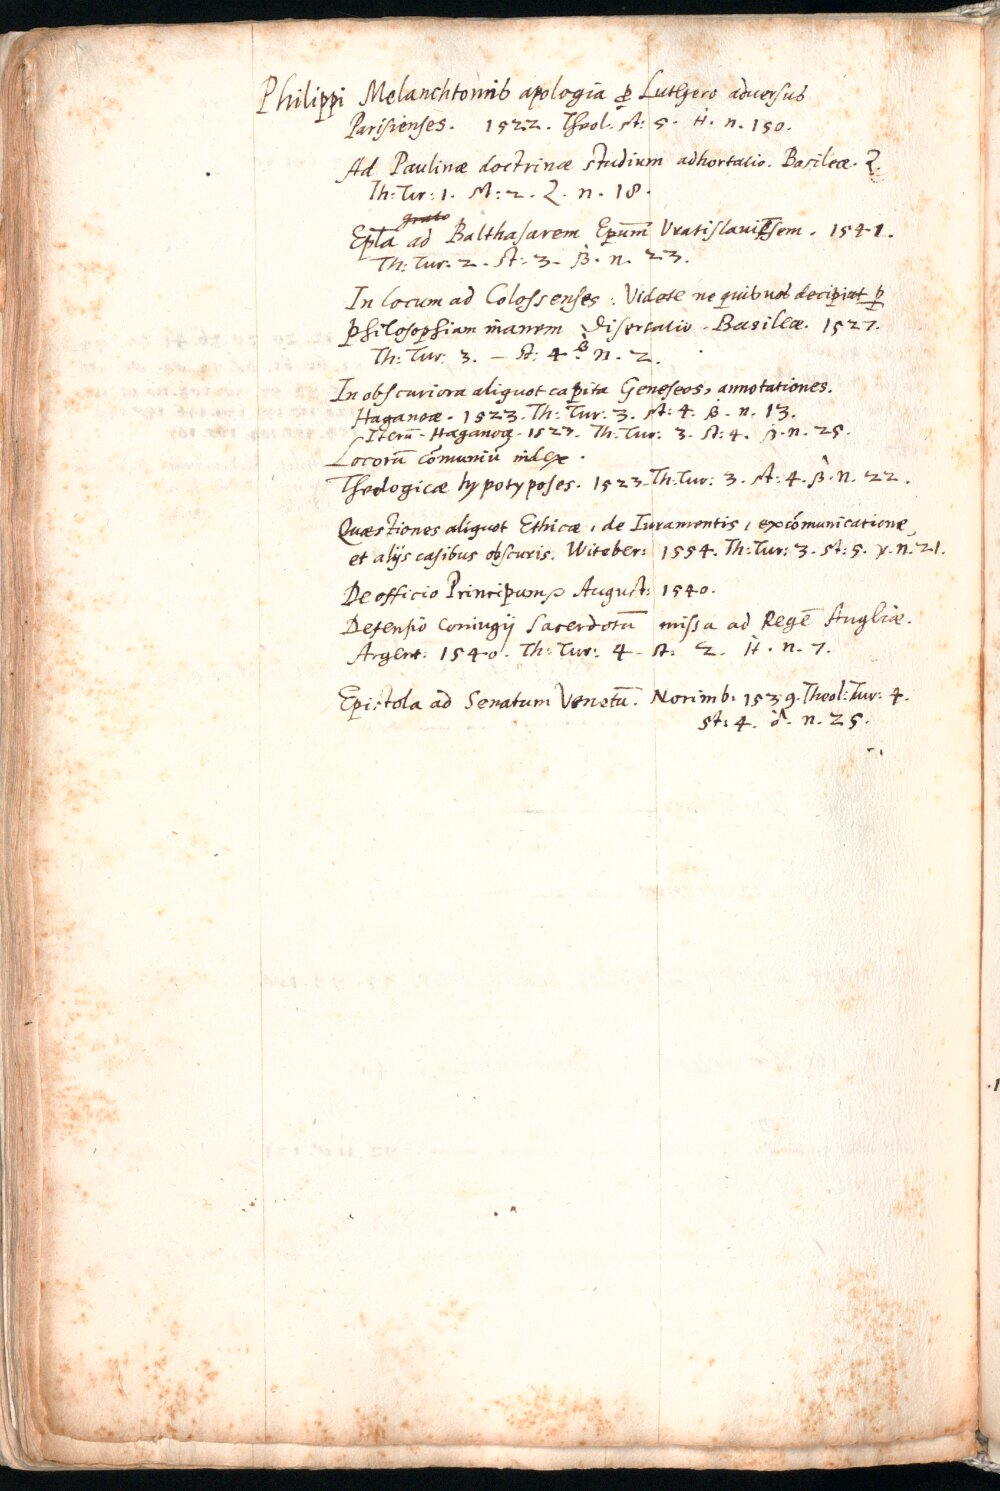 Philippi Melanchtonis apologia ꝓ Luthero aduersus
Parisienses. 1522. Theol: st: 5. H. n. 150.
Ad Paulinæ doctrinæ studium adhortatio. Basileæ.
Th: Tur: 1. st: 2. 2. n. 18.
Epl̃a ad Balthasarem Epum̃ Vratislauiẽsem. 1541.
Th: Tur: 2. st: 3. β. n. 23.
In locum ad Colossenses: Videte ne quis uos decipiat ꝑ
philosophiam inanem Disertatio. Basileæ. 1527.
Th: Tur: 3. – st: 4. β. n. 2.
In obscuriora aliquot capita Geneseos, annotationes.
Haganoæ. 1523. Th: Tur: 3. st: 4. β. n. 13.
Iterũ. Haganoæ. 1523. Th: Tur: 3. st: 4. β. n. 25.
Locorũ cõmuniũ index.
Theologicæ hypotyposes. 1523. Th: Tur: 3. st: 4. β. n. 22.
Quæstiones aliquot Ethicæ, de Iuramentis, excõmunicatione,
et alijs casibus obscuris. Witeber: 1554. Th: Tur: 3. st: 5. γ. n. 21.
De officio Principum August: 1540.
Defensio coniugij Sacerdotũ missa ad Regẽ Angliæ.
Argent: 1540. Th: Tur: 4. st: 2. H. n. 7.
Epistola ad Senatum Venetũ. Norimb: 1539. Theol: Tur: 4.
st: 4. δ. n. 25.